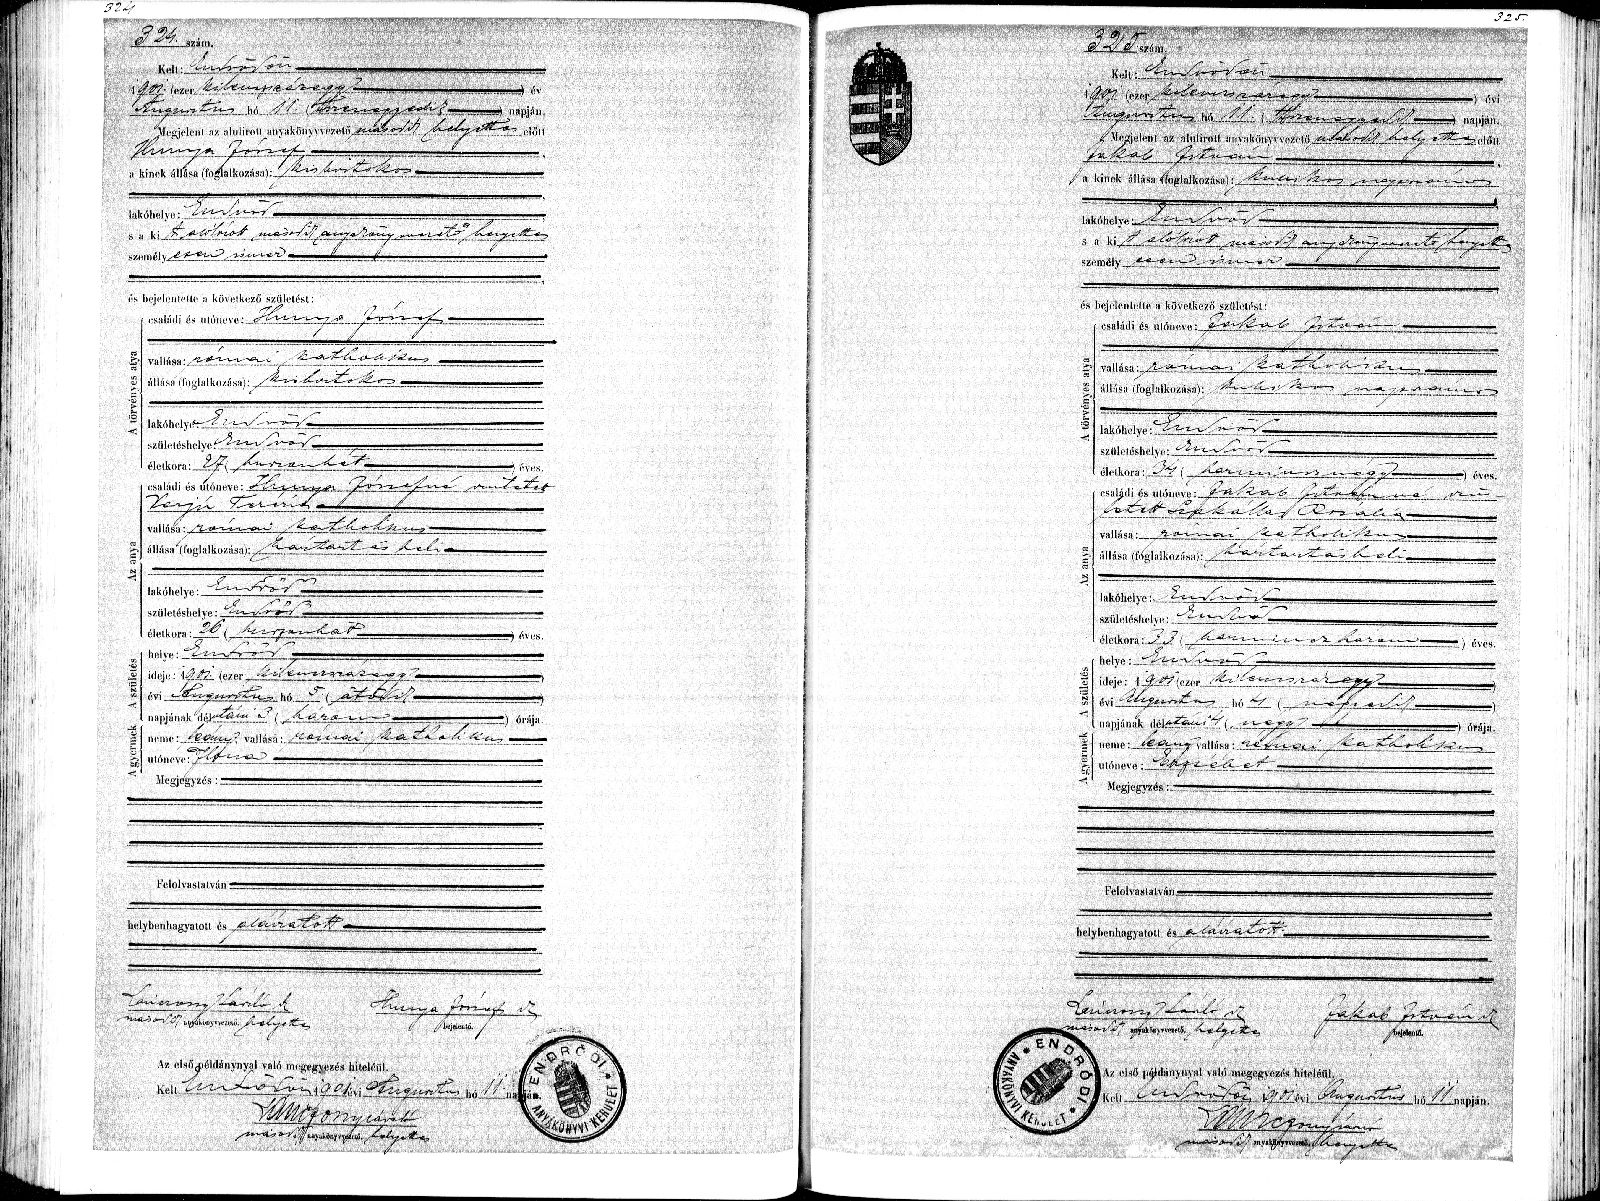 324
324. szám.
Kelt: Endrődön
1901 (ezer kilenczszázegy) év
Augustus hó 11. (tizenegyedik) napján.
Megjelent az alulirott anyakönyvvezető második helyettes előtt
Hunya József
a kinek állása (foglalkozása): kisbirtokos
lakóhelye: Endrőd
s a ki t alólirott második anyakönyvvezető helyettes
személyesen ismer
és bejelentette a következő születést:
A törvényes atya
családi és utóneve: Hunya József
vallása: római katholikus
állása (foglalkozása): kisbirtokos
lakóhelye: Endrőd
születéshelye: Endrőd
életkora: 27 (huszonhét) éves.
Az anya
családi és utóneve: Hunya Józsefné született
Terézia
vallása: római katholikus
állása (foglalkozása): háztartásbeli
lakóhelye: Endrőd
születéshelye: Endrőd
életkora: 26 (huszonhat) éves.
A születés
helye: Endrőd
ideje: 1901 (ezer kilenczszázegy)
évi Augustus hó 5 (ötödik)
napjának délutáni 3 (három) órája.
A gyermek
neme: leány vallása: római katholikus
utóneve: Ilona
Megjegyzés:
Felolvastatván
helybenhagyatott és aláiratott
László sk
második anyakönyvvezető. helyettes
Hunya József sk
bejelentő.
Az első példánynyal való megegyezés hiteléül.
Kelt Endrődön 1901 évi Augustus hó 11 napján.
második anyakönyvvezető. helyettes
ENDRŐDI ANYAKÖNYVI KERÜLET
325.
325 szám.
Kelt: Endrődön
1901 (ezer kilenczszázegy) évi
Augustus hó 11. (tizenegyedik) napján.
Megjelent az alulirott anyakönyvvezető második helyettes előtt
Jakab István
a kinek állása (foglalkozása): kubikos napszámos
lakóhelye: Endrőd
s a ki t alólirott második anyakönyvvezető helyettes
személyesen ismer
és bejelentette a következő születést:
A törvényes atya
családi és utóneve: Jakab István
vallása: római katholikus
állása (foglalkozása): kubikos napszámos
lakóhelye: Endrőd
születéshelye: Endrőd
életkora: 34 (harmincznégy) éves.
Az anya
családi és utóneve: Jakab Istvánné szü-
letett Szakállas Rozália
vallása: római katholikus
állása (foglalkozása): háztartásbeli
lakóhelye: Endrőd
születéshelye: Endrőd
életkora: 33 (harminczhárom) éves.
A születés
helye: Endrőd
ideje: 1901 (ezer kilenczszázegy)
évi Augustus hó 4 (negyedik)
napjának délutáni 4 (négy) órája.
A gyermek
neme: leány vallása: római katholikus
utóneve: Erzsébet
Megjegyzés:
Felolvastatván
helybenhagyatott és aláiratott
László sk
második anyakönyvvezető. helyettes
Jakab István sk
bejelentő.
Az első példánynyal való megegyezés hiteléül.
Kelt Endrődön 1901 évi Augustus hó 11 napján.
második anyakönyvvezető. helyettes
ENDRŐDI ANYAKÖNYVI KERÜLET